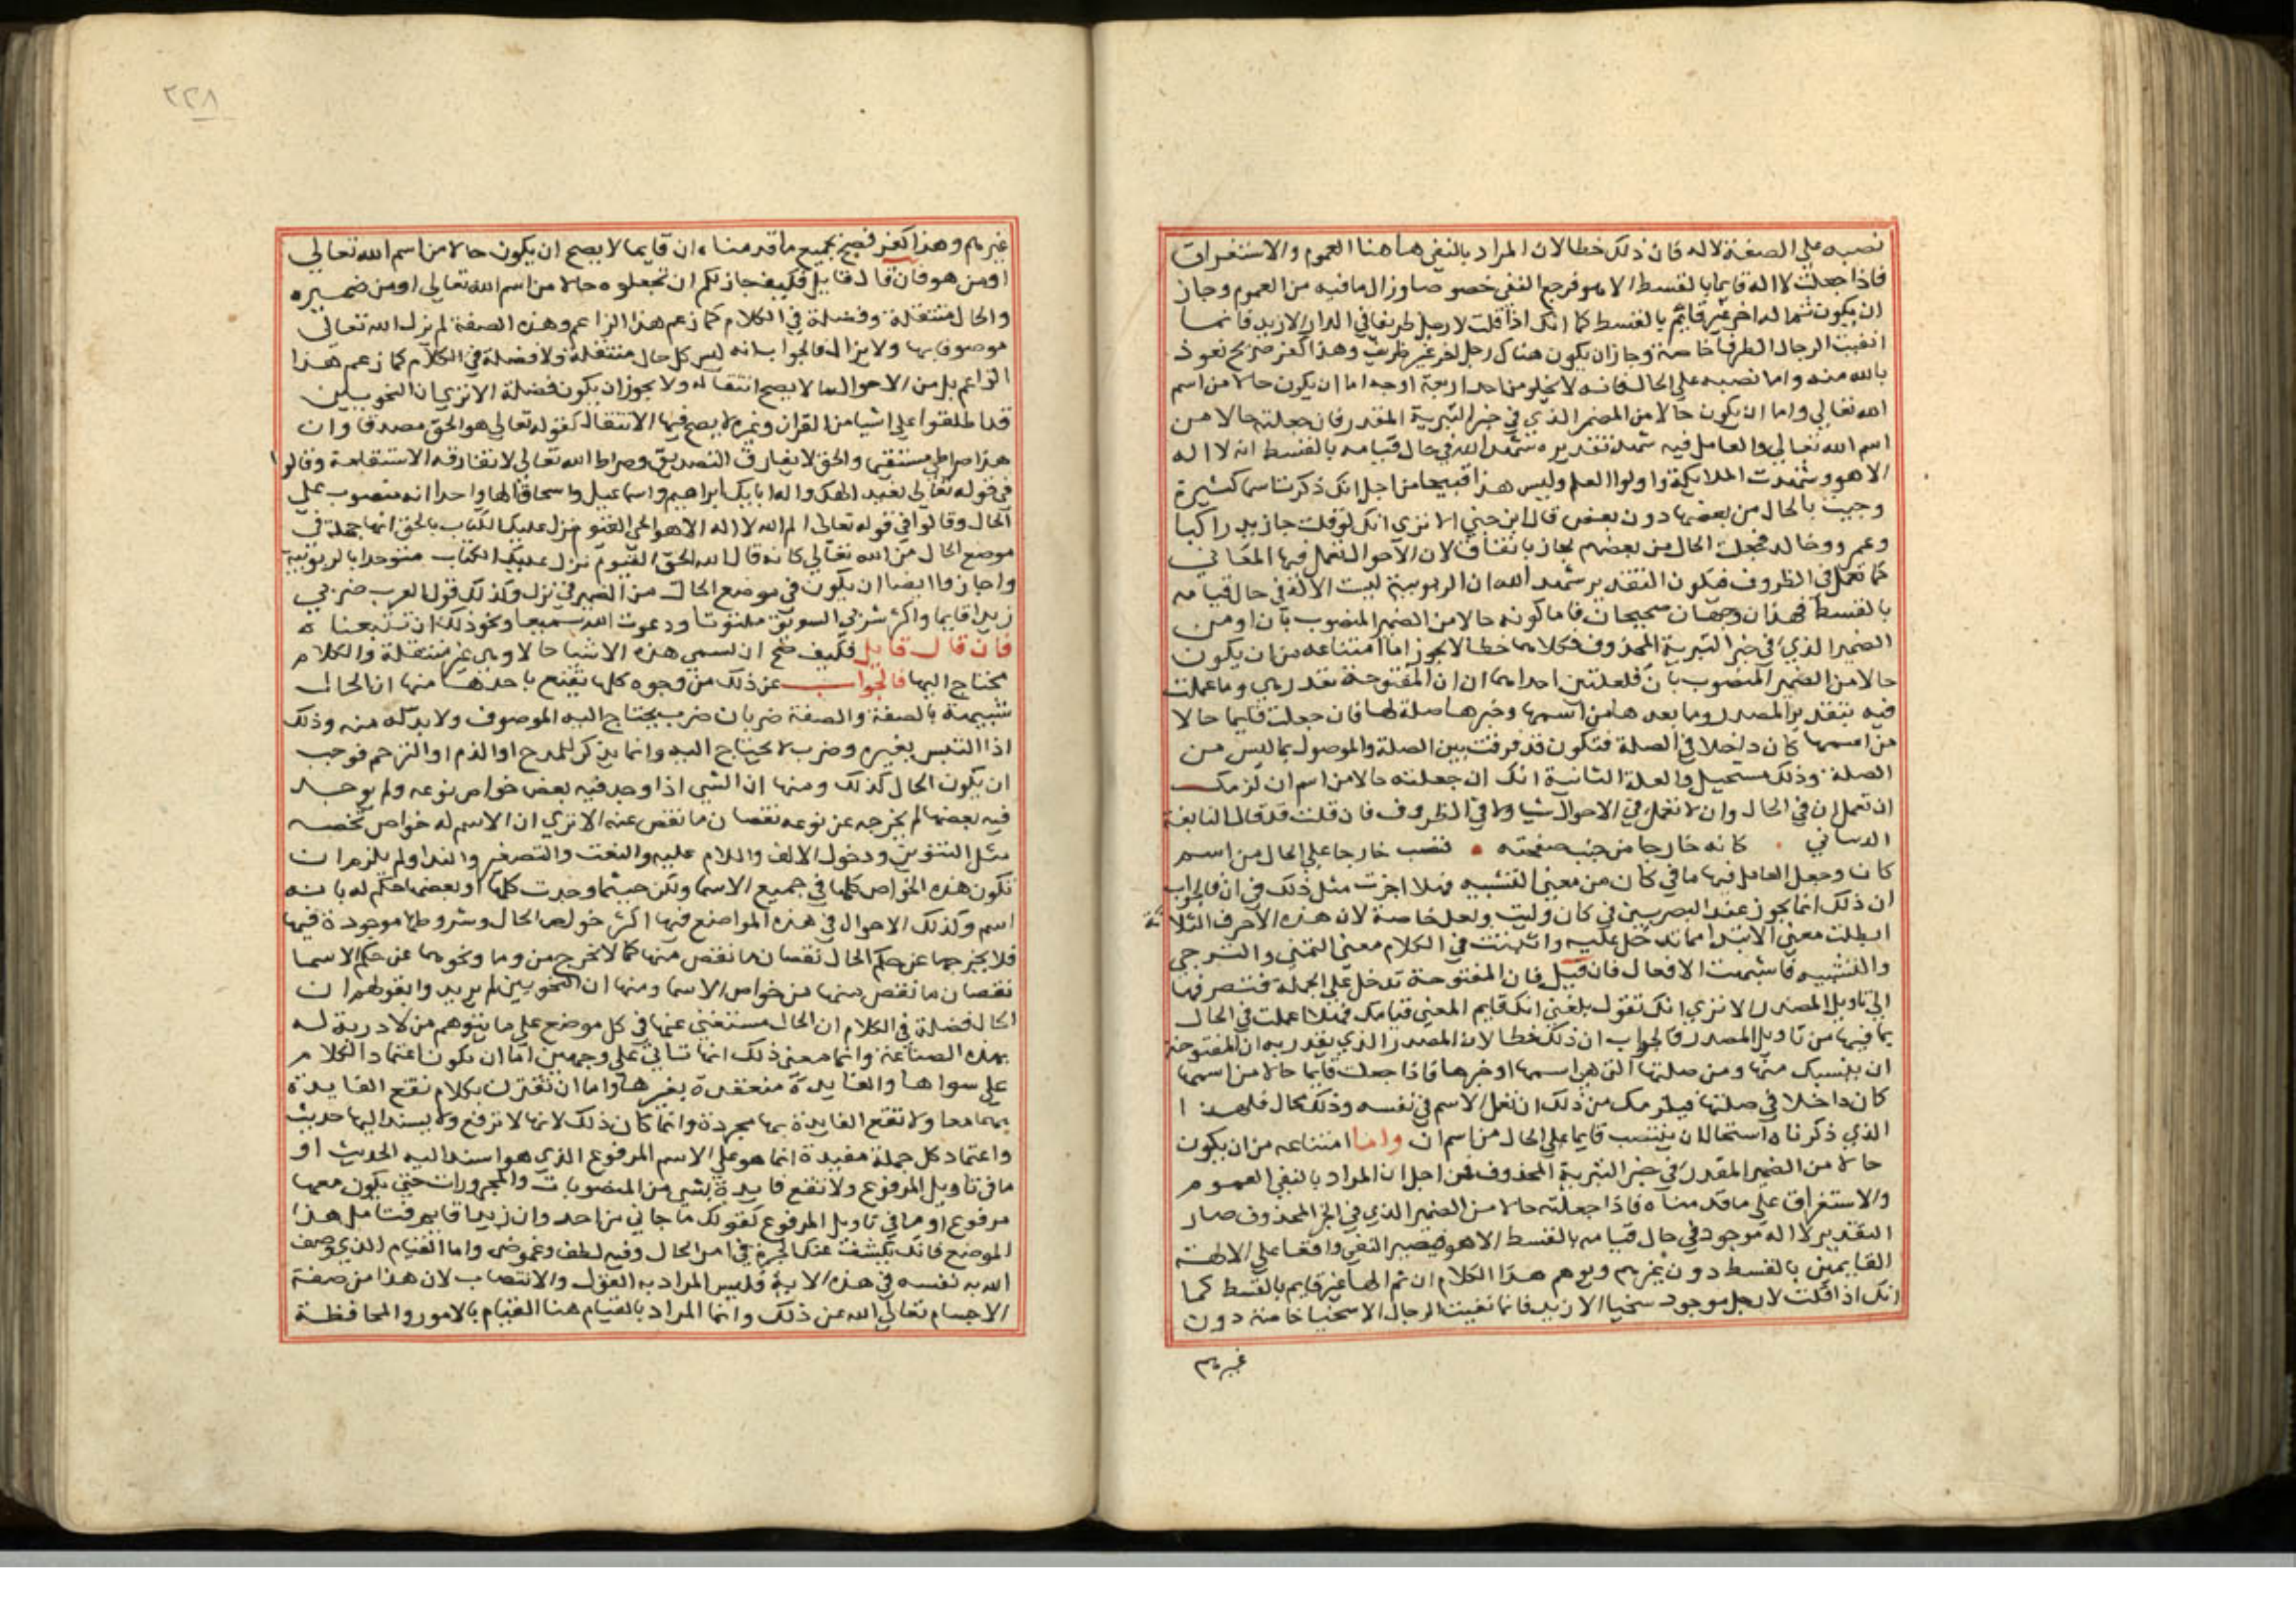 نصبه علي الصفة لاله فان ذلك خطا لان المراد بالنفي هاهنا العموم والاستغراق
فاذا جعلت لا اله قايما بالقسط الا هو فرجع النفي خصوصا وزال ما فيه من العموم وجاز
ان يكون ثم اله اخر غير قايم بالقسط كما انك اذا قلت لا رجل ظريفا في الدار الا زيد فانما
انفيت الرجال الظرفا خاصة وجاز ان يكون هناك رجل اخر غير ظريف وهذا كفر صريح نعوذ
بالله منه واما نصبه علي الحال فانه لا يخلو من احد اربعة اوجه اما ان يكون حالا من اسم
الله تعالي واما ان يكون حالا من المضمر الذي في خبر التبرية المقدر فان جعلته حالا من
اسم الله تعالي والعامل فيه شهد تقديره شهد الله في حال قيامه بالقسط انه لا اله
الا هو وشهدت الملايكة واولوا العلم وليس هذا قبيحا من اجل انك ذكرت اسما كثيرة
وجيت بالحال من بعضها دون بعض قال ابن جني الا تري انك لو قلت جا زيد راكبا
وعمرو وخالد فجعلت الحال من بعضهم لجاز باتفاق لان الاحوال تعمل فيها المعاني
كما تعمل في الظروف فيكون التقدير شهد الله ان الربوبية ليست الا له في حال قيامه
بالقسط فهذان وجهان صحيحان فاما كونه حالا من الضمير المنصوب بان او من
الضمير الذي في خبر التبرية المحذوف فكلاهما خطا لا يجوز اما امتناعه من ان يكون
حالا من الضمير المنصوب بان فلعلتين احداهما ان ان المفتوحة تقدر هي وما عملت
فيه بتقدير المصدر وما بعدها من اسمها وخبرها صلة لها فان جعلت قايما حالا
من اسمها كان داخلا في الصلة فتكون قد فرقت بين الصلة والموصول بما ليس من
الصلة وذلك مستحيل والعلة الثانية انك ان جعلته حالا من اسم ان لزمك
ان تعمل ان في الحال وان لا تعمل في الاحوال شيا ولا في الظروف فان قلت قد قال النابغة
الدساني كانه خارجا من جنب صفحته فنصب خارجا علي الحال من اسم
كان وجعل العامل فيها ما في كان من معني التشبيه فهلا اجزت مثل ذلك في ان فالجواب
ان ذلك انما يجوز عند البصريين في كان وليت ولعل خاصة لان هذه الاحرف الثلاثة
ابطلت معني الابتدا مما تدخل عليه واثبتت في الكلام معني التمني والترجي
والتشبيه فاشبهت الافعال فان قيل فان المفتوحة تدخل علي الجملة فتصرفها
الي تاويل المصدر الا تري انك تقول بلغني انك قايم المعني قيامك فهلا عملت في الحال
بما فيها من تاويل المصدر فالجواب ان ذلك خطا لان المصدر الذي يقدر به ان المفتوحة
ان ينسبك منها ومن صلتها التي هي اسمها وخبرها فاذا جعلت قايما حالا من اسمها
كان داخلا في صلتها فيلزمك من ذلك ان تعمل الاسم في نفسه وذلك محال فلهذا
الذي ذكرناه استحال ان ينتصب قايما علي الحال من اسم ان واما امتناعه من ان يكون
حالا من الضمير المقدر في خبر التبرية المحذوف فمن اجل ان المراد بالنفي العموم
والاستغراق علي ما قدمناه فاذا جعلته حالا من الضمير الذي في الخبر المحذوف صار
التقدير لا اله موجود في حال قيامه بالقسط الا هو فيصير النفي واقعا علي الالهة
القايمين بالقسط دون غيرهم ويوهم هذا الكلام ان ثم الها غير قايم بالقسط كما
انك اذا قلت لا رجل موجود سخيا الا زيد فانما نفيت الرجال الاسخيا خاصة دون
غيرهم
٢٢٨
غيرهم وهذا كفر فصح بجميع ما قدمناه ان قايما لا يصح ان يكون حالا من اسم الله تعالي
او من هو فان قال قايل فكيف جاز لكم ان تجعلوه حالا من اسم الله تعالي او من ضميره
والحال منتقلة وفضلة في الكلام كما زعم هذا الزاعم وهذه الصفة لم يزل الله تعالي
موصوفا بها ولا يزال فالجواب انه ليس كل حال منتقلة ولا فضلة في الكلام كما زعم هذا
الزاعم بل من الاحوال ما لا يصح انتقاله ولا يجوز ان يكون فضلة الا تري ان النحويين
قد اطلقوا علي اشيا من القران وغيره لا يصح فيها الانتقال كقوله تعالي هو الحق مصدقا وان
هذا صراطي مستقيما والحق لا يفارق التصديق وصراط الله تعالي لا تفارقه الاستقامة وقالوا
في قوله تعالي نعبد الهك واله ابايك ابراهيم واسماعيل واسحاق الها واحدا انه منصوب علي
الحال وقالوا في قوله تعالي الم الله لا اله الا هو الحي القيوم نزل عليك الكتاب بالحق انها جملة في
موضع الحال من الله تعالي كانه قال الله الحي القيوم نزل عليك الكتاب متوحدا بالربوبية
واجازوا ايضا ان يكون في موضع الحال من الضمير في نزل وكذلك قول العرب ضربي
زيدا قايما واكثر شربي السويق ملتوتا ودعوت الله سميعا ونحو ذلك ان تتبعناه
فان قال قايل فكيف صح ان تسمي هذه الاشيا حالا وهي غير منتقلة والكلام
محتاج اليها فالجواب عن ذلك من وجوه كلها يقنع باحدها منها ان الحال
شبيهة بالصفة والصفة ضربان ضرب يحتاج اليه الموصوف ولا بد له منه وذلك
اذا التبس بغيره وضرب لا يحتاج اليه وانما يذكر للمدح او الذم او الترحم فوجب
ان يكون الحال كذلك ومنها ان الشي اذا وجد فيه بعض خواص نوعه ولم يوجد
فيه بعضها لم يخرجه عن نوعه نقصان ما نقص عنه الا تري ان الاسم له خواص تخصه
مثل التنوين ودخول الالف واللام عليه والنعت والتصغير والندا ولم يلزم ان
تكون هذه الخواص كلها في جميع الاسما ولكن حيثما وجدت كلها او بعضها حكم له بانه
اسم وكذلك الاحوال في هذه المواضع فيها اكثر خواص الحال وشروطها موجودة فيها
فلا يخرجها عن حكم الحال نقصان ما نقص منها كما لا يخرج من وما ونحوهما عن حكم الاسما
نقصان ما نقص منها من خواص الاسما ومنها ان النحويين لم يريدوا بقولهم ان
الحال فضلة في الكلام ان الحال مستغني عنها في كل موضع علي ما يتوهم من لا دربة له
بهذه الصناعة وانما معني ذلك انها تاتي علي وجهين اما ان يكون اعتماد الكلام
علي سواها والفايدة منعقدة بغيرها واما ان تقترن بكلام تقع الفايدة
بهما معا ولا تقع الفايدة بها مجردة وانما كان ذلك لانها لا ترفع ولا يسند اليها حديث
واعتماد كل جملة مفيدة انما هو علي الاسم المرفوع الذي هو اسند اليه الحديث او
ما في تاويل المرفوع ولا تقع فايدة بشي من المنصوبات والمجرورات حتي يكون معها
مرفوع او ما في تاويل المرفوع كقولك ما جاني من احد وان زيدا قايم فتامل هذا
الموضع فانك يكشف عنك الحيرة في امر الحال وفيه لطف وغموض واما القيام الذي وصف
الله به نفسه في هذه الاية فليس المراد به العول والانتصاب لان هذا من صفة
الاجسام تعالي الله عن ذلك وانما المراد بالقيام هنا القيام بالامور والمحافظة